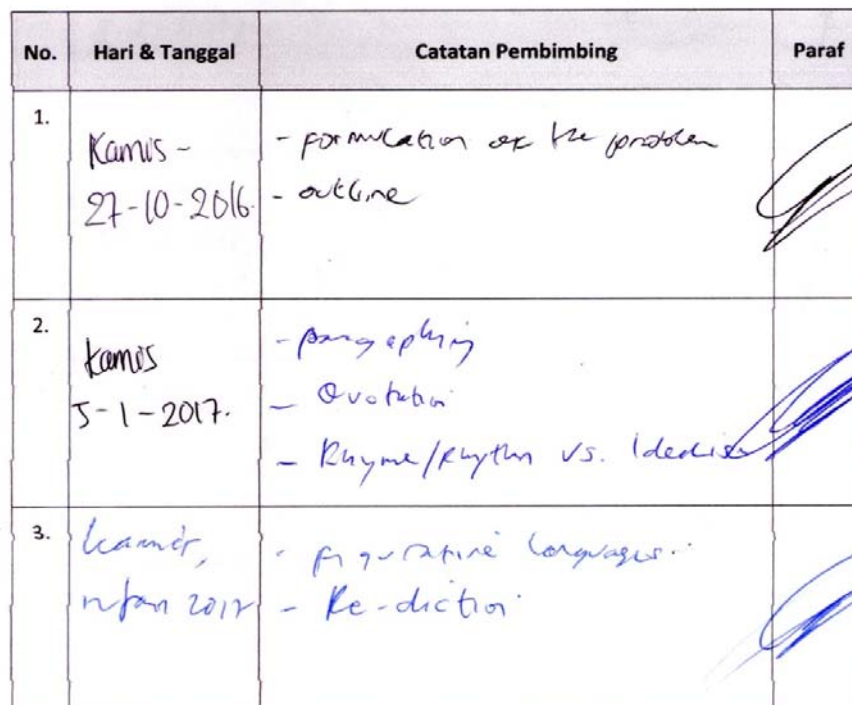 No. Hari & Tanggal Catatan Pembimbing Paraf
1.
Kamis -
27-10-2016.
- formulation of the problem
- outline
2.
Kamis
5-1-2017.
- paragraphing
- Quotation
- Rhyme/Rhythm vs. Idealism
3.
Kamis,
Jan 2017
- figurative languages.
- Re-diction